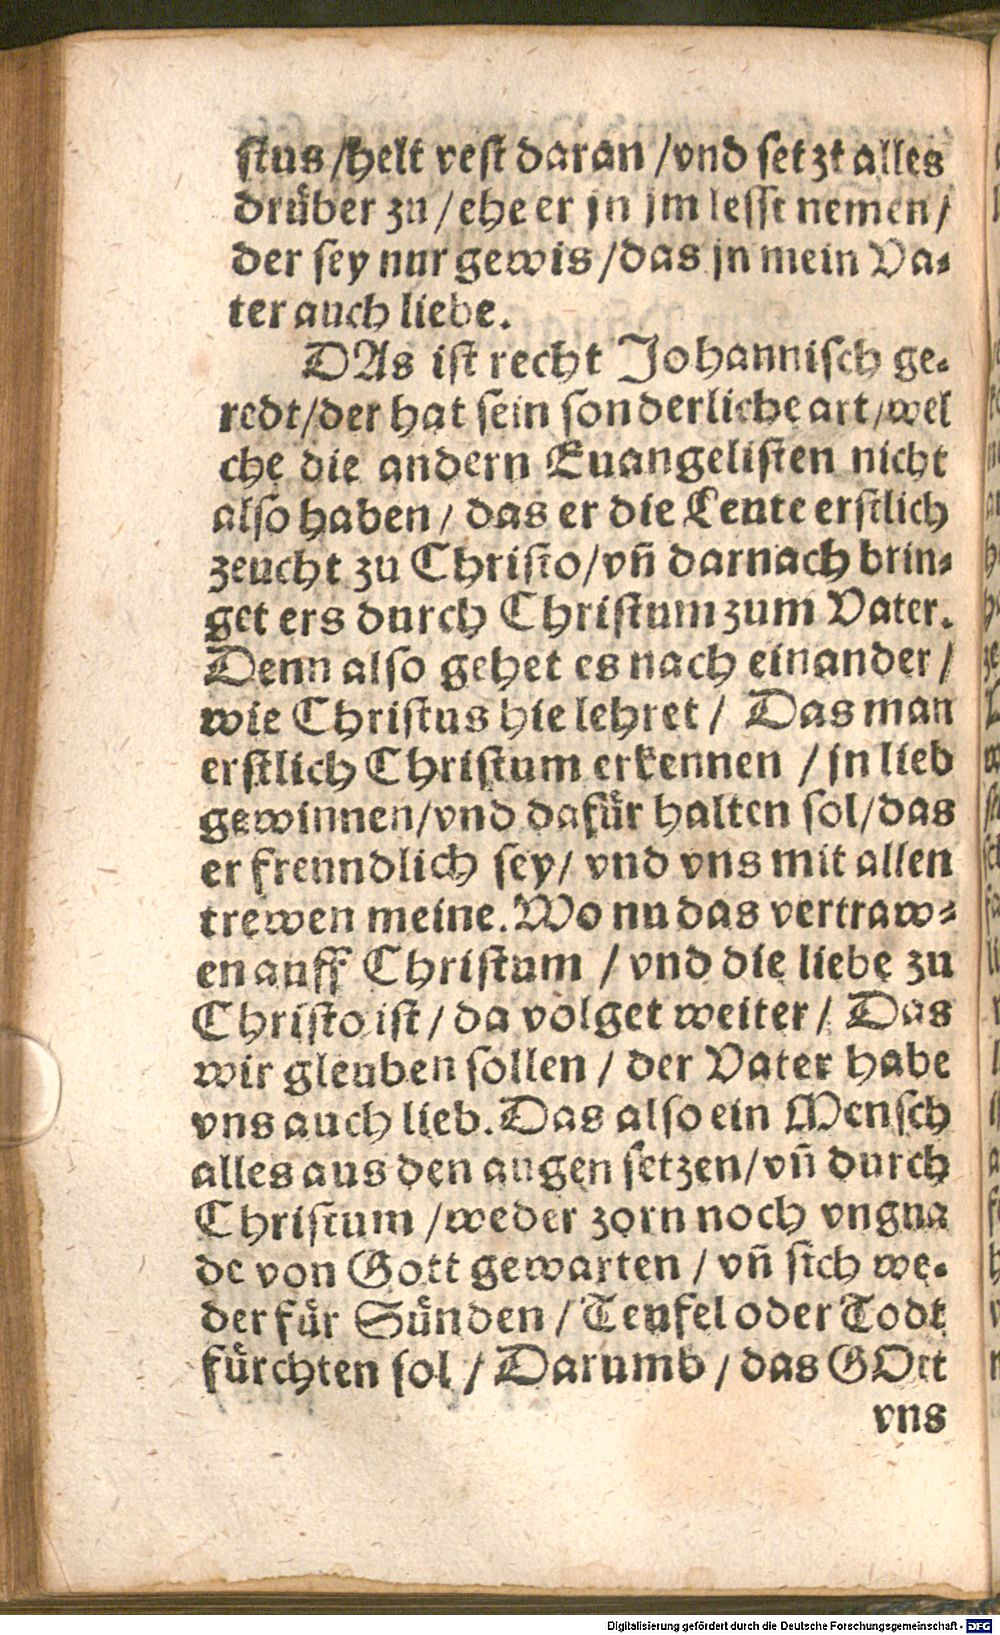 stus /helt vest daran /vnd setzt alles
drüber zu / ehe er jn jm lesst nemen /
der sey nur gewis /das jn mein Va⸗
ter auch liebe.
DAs ist recht Johannisch ge⸗
redt/der hat sein sonderliche art /wel
che die andern Euangelisten nicht
also haben / das er die Leute erstlich
zeucht zu Christo/vñ darnach brin⸗
get ers durch Christum zum Vater.
Denn also gehet es nach einander /
wie Christus hie lehret / Das man
erstlich Christum erkennen / jn lieb
gewinnen/vnd dafür halten sol/das
er freundlich sey/ vnd vns mit allen
trewen meine. Wo nu das vertraw⸗
en auff Christum / vnd die liebe zu
Christo ist / da volget weiter / Das
wir gleuben sollen / der Vater habe
vns auch lieb. Das also ein Mensch
alles aus den augen setzen/vñ durch
Christum /weder zorn noch vngna
de von Gott gewarten / vñ sich we⸗
der für Sünden / Teufel oder Todt
fürchten sol / Darumb / das GOtt
vns
Digitalisierung gefördert durch die Deutsche Forschungsgemeinschaft - DFG